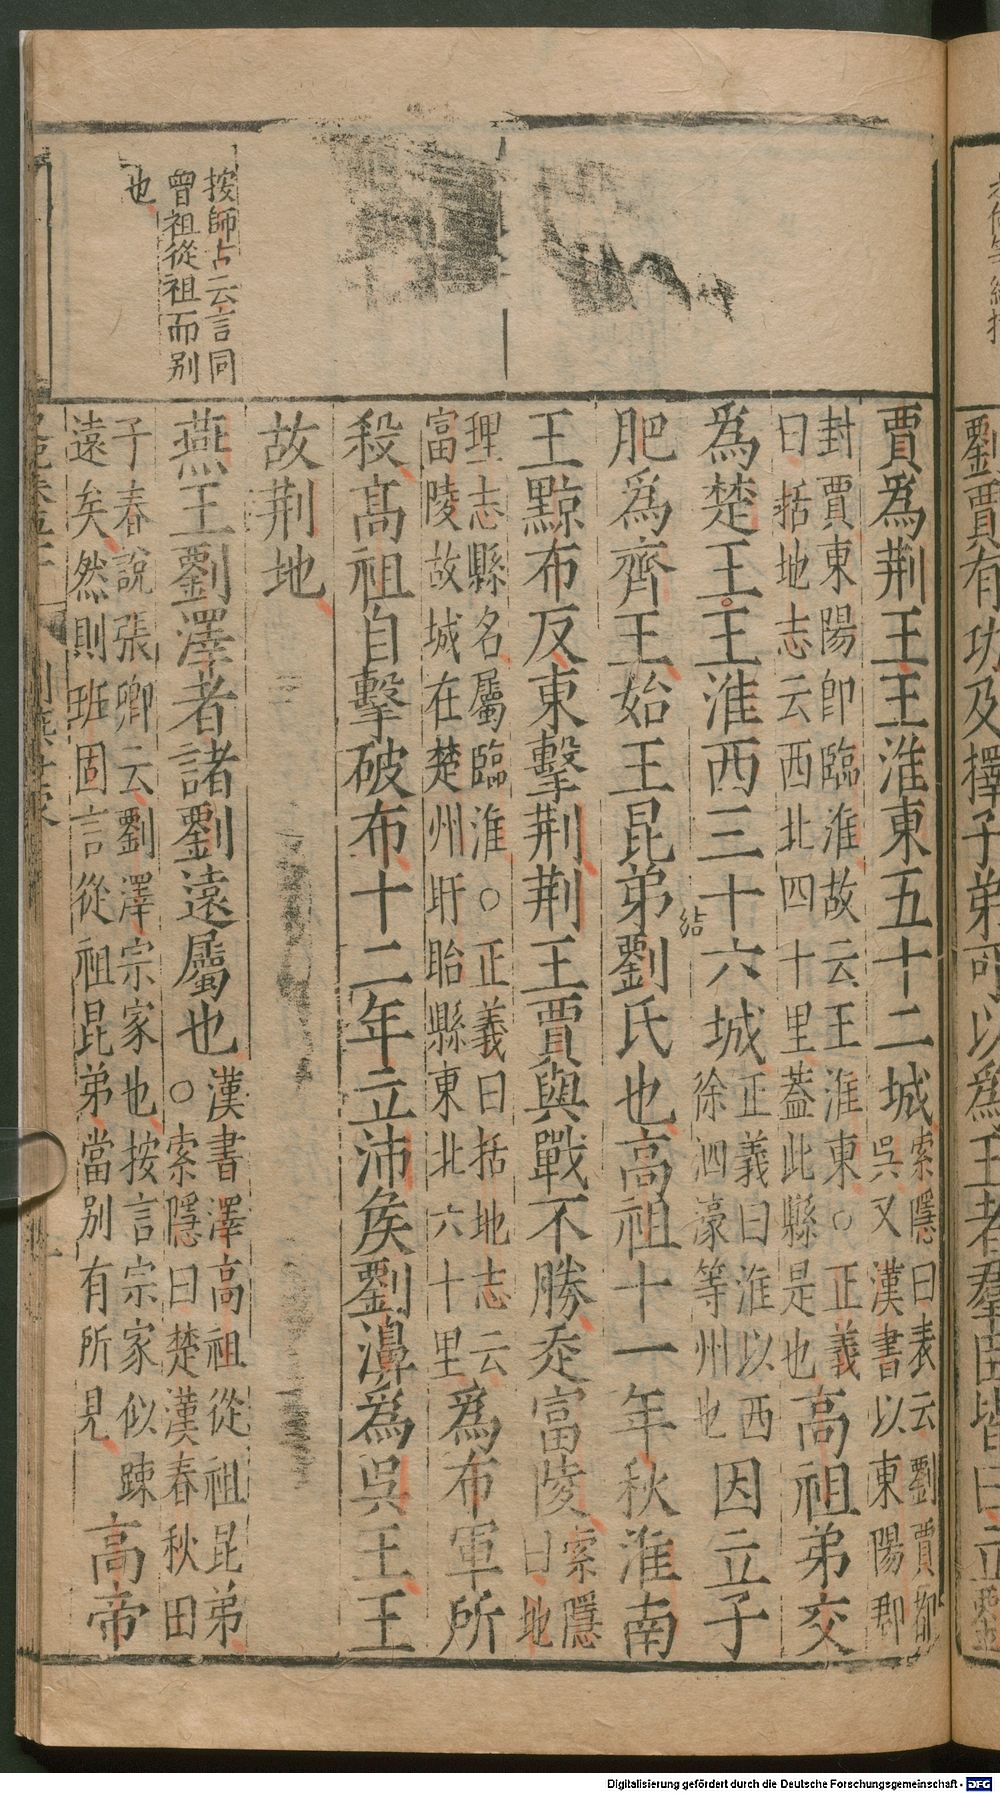 劉賈有功及擇子弟可以爲王者羣臣皆曰立
賈爲荆王王淮東五十二城索隱曰表云劉賈都
吳又漢書以東陽郡
封賈東陽即臨淮故云王淮東○正義
曰括地志云西北四十里蓋此縣是也高祖弟交
爲楚王王淮西三十六城正義曰淮以西
徐泗濠等州也因立子
肥爲齊王始王昆弟劉氏也高祖十一年秋淮南
王黥布反東擊荆荆王賈與戰不勝走富陵索隱
曰地
理志縣名屬臨淮○正義曰括地志云
富陵故城在楚州盱眙縣東北六十里爲布軍所
殺高祖自擊破布十二年立沛侯劉濞爲吳王王
故荆地
燕王劉澤者諸劉遠屬也漢書澤高祖從祖昆弟
○索隱曰楚漢春秋田
子春說張卿云劉澤宗家也按言宗家似踈
遠矣然則班固言從祖昆弟當別有所見高帝
按師古云言同
曾祖從祖而別
也
Digitalisierung gefördert durch die Deutsche Forschungsgemeinschaft - DFG